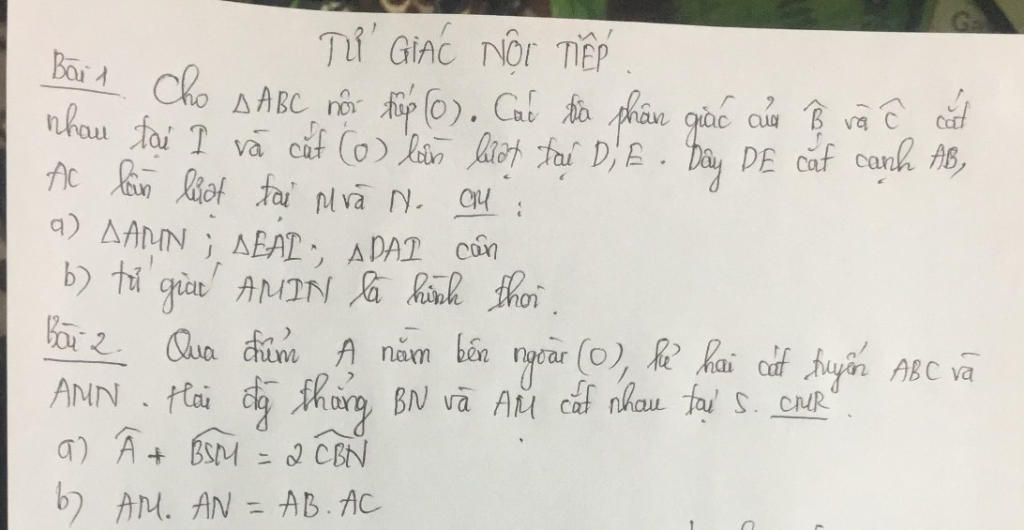 TỨ GIÁC NỘI TIẾP.
Bài 1 Cho △ABC nội tiếp (O). Các tia phân giác của B̂ và Ĉ cắt
nhau tại I và cắt (O) lần lượt tại D, E. Dây DE cắt cạnh AB,
AC lần lượt tại M và N. CM:
a) △AMN; △EAI; △DAI cân
b) tứ giác AMIN là hình thoi.
Bài 2. Qua điểm A nằm bên ngoài (O), kẻ hai cát tuyến ABC và
AMN. Hai đg thẳng BN và AM cắt nhau tại S. CMR
a) Â + BSM = 2 CBN
b) AM. AN = AB. AC